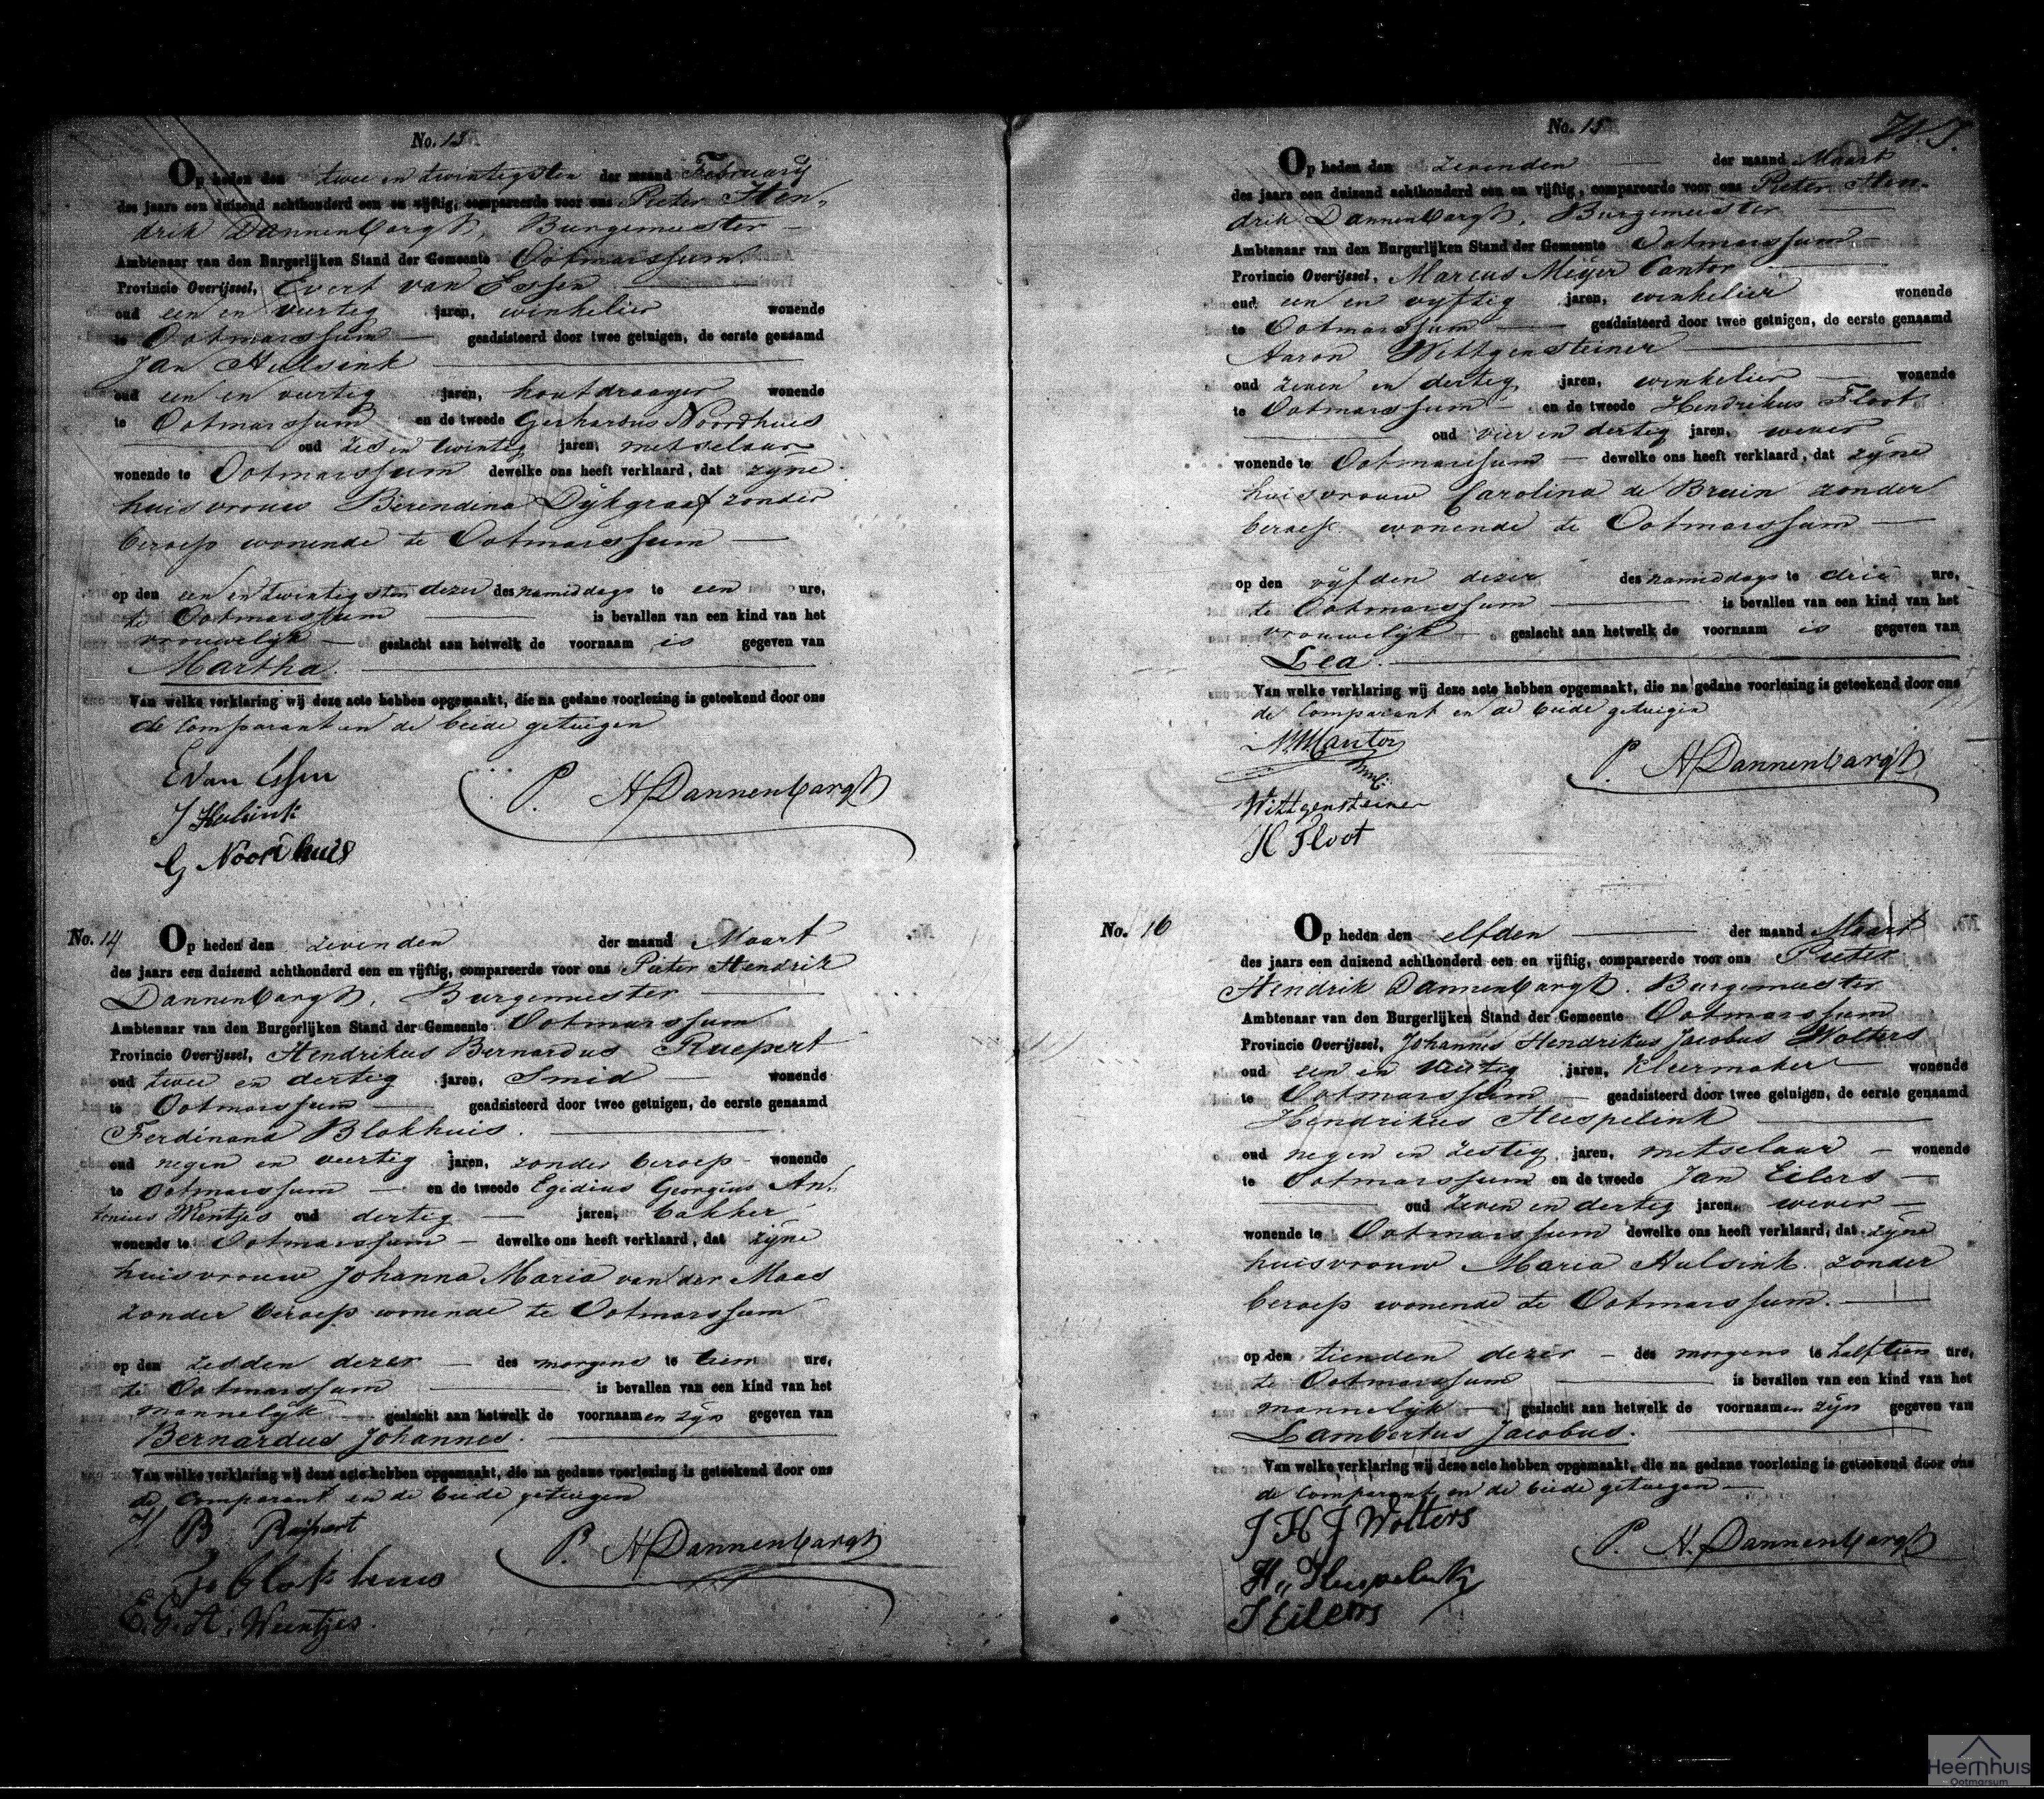 No. 13
Op heden den twee en twintigsten der maand February
des jaars een duizend achthonderd een en vijftig, compareerde voor ons Pieter Hen-
drik Dannenbargh, Burgemeester
Ambtenaar van den Burgerlijken Stand der Gemeente Ootmarssum
Provincie Overijssel, Evert van Essen
oud een en veertig jaren, winkelier wonende
te Ootmarssum geadsisteerd door twee getuigen, de eerste genaamd
Jan Hulsink
oud een en veertig jaren, houtdraager wonende
te Ootmarssum en de tweede Gerhardus Noordhuis
oud zes en twintig jaren, metselaar
wonende te Ootmarssum dewelke ons heeft verklaard, dat zijne
huisvrouw Berendina Dijkgraaf zonder
beroep wonende te Ootmarssum
op den een en twintigsten dezer des namiddags te een ure,
te Ootmarssum is bevallen van een kind van het
vrouwelijk geslacht aan hetwelk de voornaam is gegeven van
Martha.
Van welke verklaring wij deze acte hebben opgemaakt, die na gedane voorlezing is geteekend door ons
de Comparant en de beide getuigen
E van Essen
J Hulsink
P. H Dannenbargh
G Noordhuis
No. 14
Op heden den zevenden der maand Maart
des jaars een duizend achthonderd een en vijftig, compareerde voor ons Pieter Hendrik
Dannenbargh, Burgemeester
Ambtenaar van den Burgerlijken Stand der Gemeente Ootmarssum
Provincie Overijssel, Hendrikus Bernardus Ruepert
oud twee en dertig jaren, Smid wonende
te Ootmarssum geadsisteerd door twee getuigen, de eerste genaamd
Ferdinand Blokhuis.
oud negen en veertig jaren, zonder beroep wonende
te Ootmarssum en de tweede Egidius Georgius An-
tonius Wentjes oud dertig jaren, bakker
wonende te Ootmarssum dewelke ons heeft verklaard, dat zijne
huisvrouw Johanna Maria van der Maas
zonder beroep wonende te Ootmarssum
op den zesden dezer des morgens te tien ure,
te Ootmarssum is bevallen van een kind van het
mannelijk geslacht aan hetwelk de voornaamen zijn gegeven van
Bernardus Johannes.
Van welke verklaring wij deze acte hebben opgemaakt, die na gedane voorlezing is geteekend door ons
de Comparant en de beide getuigen
H B Rupert
P. H Dannenbargh
F Blokhuis
E. G. A. Weentjes.
No. 15
Op heden den zevenden der maand Maart
des jaars een duizend achthonderd een en vijftig, compareerde voor ons Pieter Hen-
drik Dannenbargh, Burgemeester
Ambtenaar van den Burgerlijken Stand der Gemeente Ootmarssum
Provincie Overijssel, Marcus Meijer Cantor
oud een en vijftig jaren, winkelier wonende
te Ootmarssum geadsisteerd door twee getuigen, de eerste genaamd
Aaron Wittgensteiner
oud zeven en dertig jaren, winkelier wonende
te Ootmarssum en de tweede Hendrikus Floot
oud vier en dertig jaren, wever
wonende te Ootmarssum dewelke ons heeft verklaard, dat zijne
huisvrouw Carolina de Bruin zonder
beroep wonende te Ootmarssum
op den vijfden dezer des namiddags te drie ure,
te Ootmarssum is bevallen van een kind van het
vrouwelijk geslacht aan hetwelk de voornaam is gegeven van
Lea.
Van welke verklaring wij deze acte hebben opgemaakt, die na gedane voorlezing is geteekend door ons
de Comparant en de beide getuigen
MM Cantor
P. H Dannenbargh
Wittgensteiner
H Floot
No. 16
Op heden den elfden der maand Maart
des jaars een duizend achthonderd een en vijftig, compareerde voor ons Pieter
Hendrik Dannenbargh. Burgemeester
Ambtenaar van den Burgerlijken Stand der Gemeente Ootmarssum
Provincie Overijssel, Johannes Hendrikus Jacobus Wolters
oud een en veertig jaren, kleermaker wonende
te Ootmarssum geadsisteerd door twee getuigen, de eerste genaamd
Hendrikus Hespelink
oud negen en zestig jaren, metselaar wonende
te Ootmarssum en de tweede Jan Eilers
oud zeven en dertig jaren, wever
wonende te Ootmarssum dewelke ons heeft verklaard, dat zijne
huisvrouw Maria Hulsink zonder
beroep wonende te Ootmarssum.
op den tienden dezer des morgens te half tien ure,
te Ootmarssum is bevallen van een kind van het
mannelijk geslacht aan hetwelk de voornaamen zijn gegeven van
Lambertus Jacobus.
Van welke verklaring wij deze acte hebben opgemaakt, die na gedane voorlezing is geteekend door ons
de Comparant en de beide getuigen
J H J Wolters
P. H. Dannenbargh
H. Hespelink
J Eilers
Heemhuis
Ootmarsum